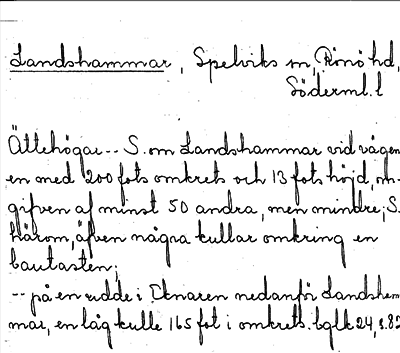 Landshammar, Spelviks sn, Rönö hd,
Söderml. l
Ättehögar -- S. om Landshammar vid vägen
en med 200 fots omkrets och 13 fots höjd, om-
gifven af minst 50 andra, men mindre; S.
härom, äfven några kullar omkring en
bautasten;
-- på en udde i Eknaren nedanför Landsham
mar, en låg kulle 165 fot i omkrets. bglk 24, s. 82